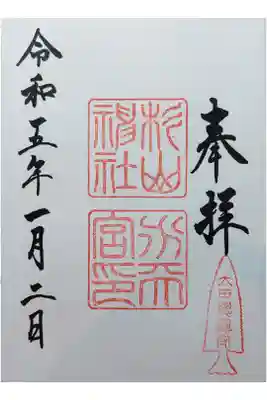 奉拝
杉山
神社
宮印
令和五年一月二日